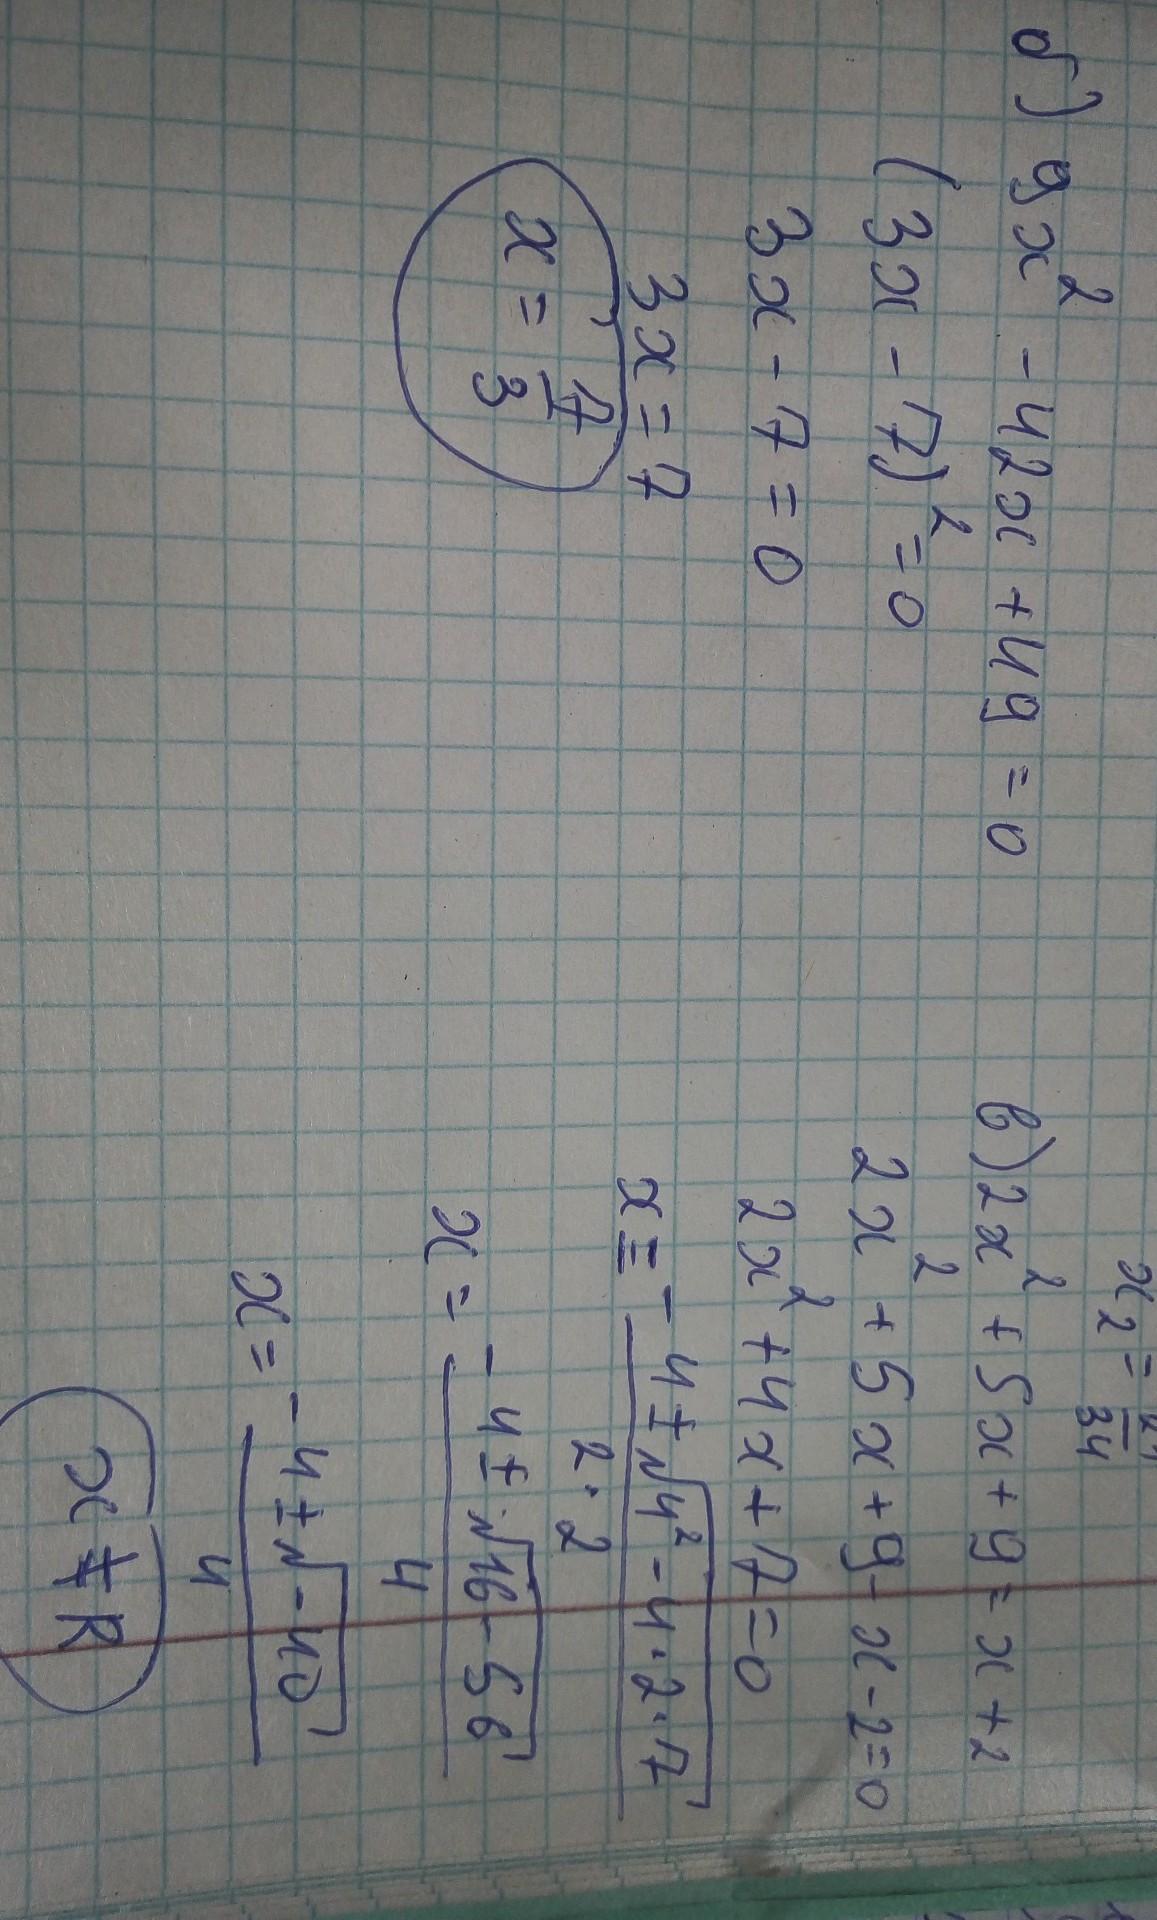 б) 9x² - 42x + 49 = 0
(3x - 7)² = 0
3x - 7 = 0
3x = 7
x = 7/3
x₂ = /34
в) 2x² + 5x + 9 = x + 2
2x² + 5x + 9 - x - 2 = 0
2x² + 4x + 7 = 0
x = -4 ± √4² - 4·2·7 / 2·2
x = -4 ± √16 - 56 / 4
x = -4 ± √-40 / 4
x ∉ R